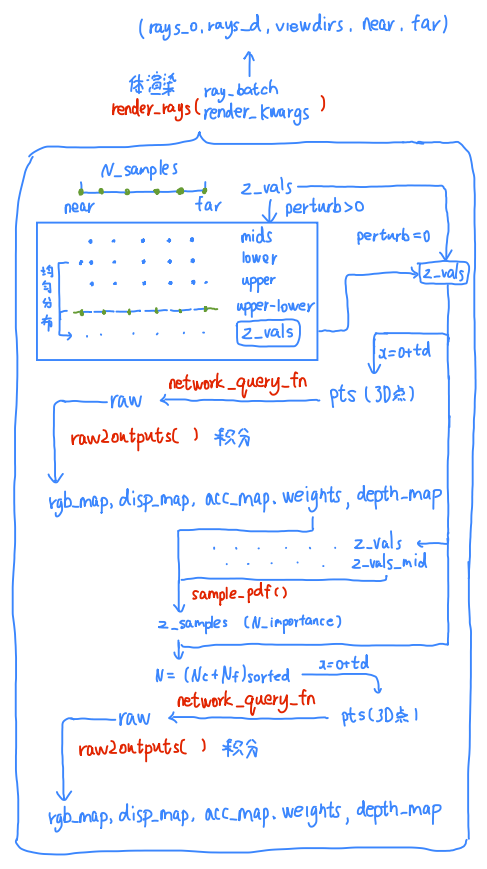 (rays_o, rays_d, viewdirs, near, far)
体渲染
ray_batch
render_rays(
render_kwargs
)
N_samples
near
far
z_vals
perturb>0
perturb=0
mids
lower
upper
upper-lower
z_vals
均匀分布
z_vals
x=o+td
pts (3D点)
network_query_fn
raw
raw2outputs( ) 积分
rgb_map, disp_map, acc_map, weights, depth_map
z_vals
z_vals_mid
sample_pdf()
z_samples (N_importance)
N=(Nc+Nf)sorted
x=o+td
pts(3D点)
network_query_fn
raw
raw2outputs( ) 积分
rgb_map, disp_map, acc_map, weights, depth_map